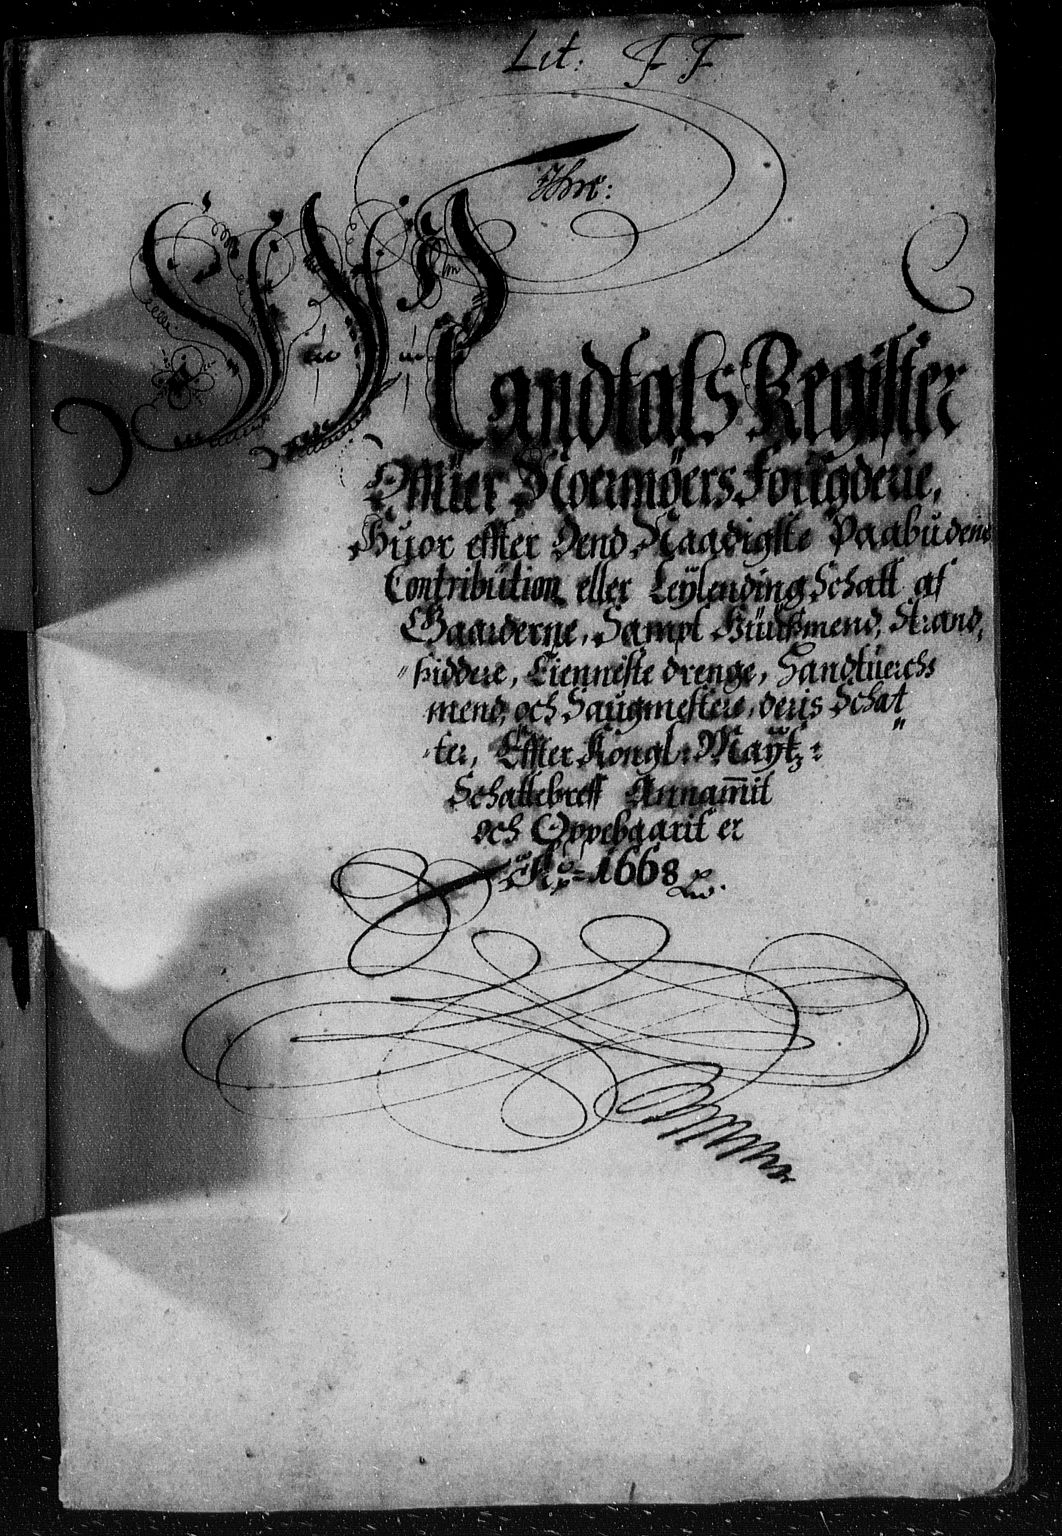 Lit: FF
Mandtals Register
Offuer Noermøers Fougderie,
Huor effter Dend Naadigste Paabudene
Contribution eller Leylending Schatt af
Gaarderne, Sampt Huusmend, Strand,
"siddere, Tienneste drenge, Handtuerchs
mend, och Saugmestere, deris Schat
"ter, Effter Kongl: Maytz:
Schattebreff Annammit
och Oppebaarit er
Ao = 1668